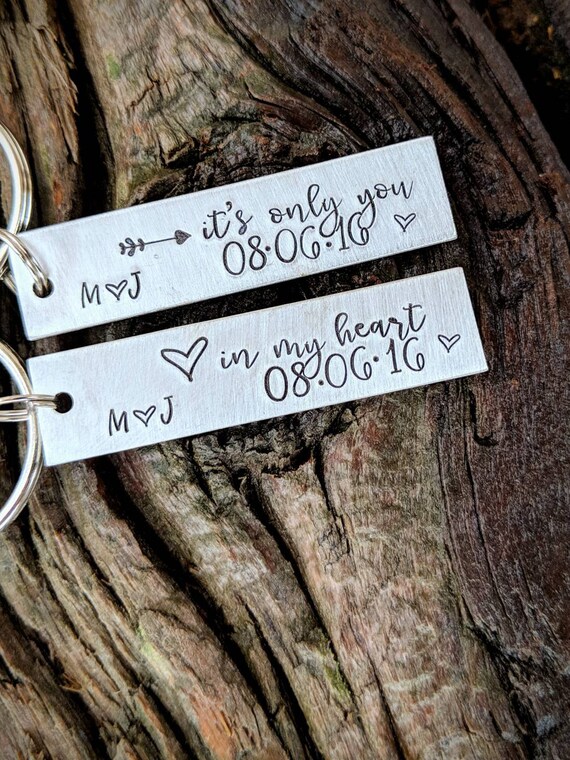 it's only you
08·06·16
M♡J
in my heart
08·06·16
M♡J